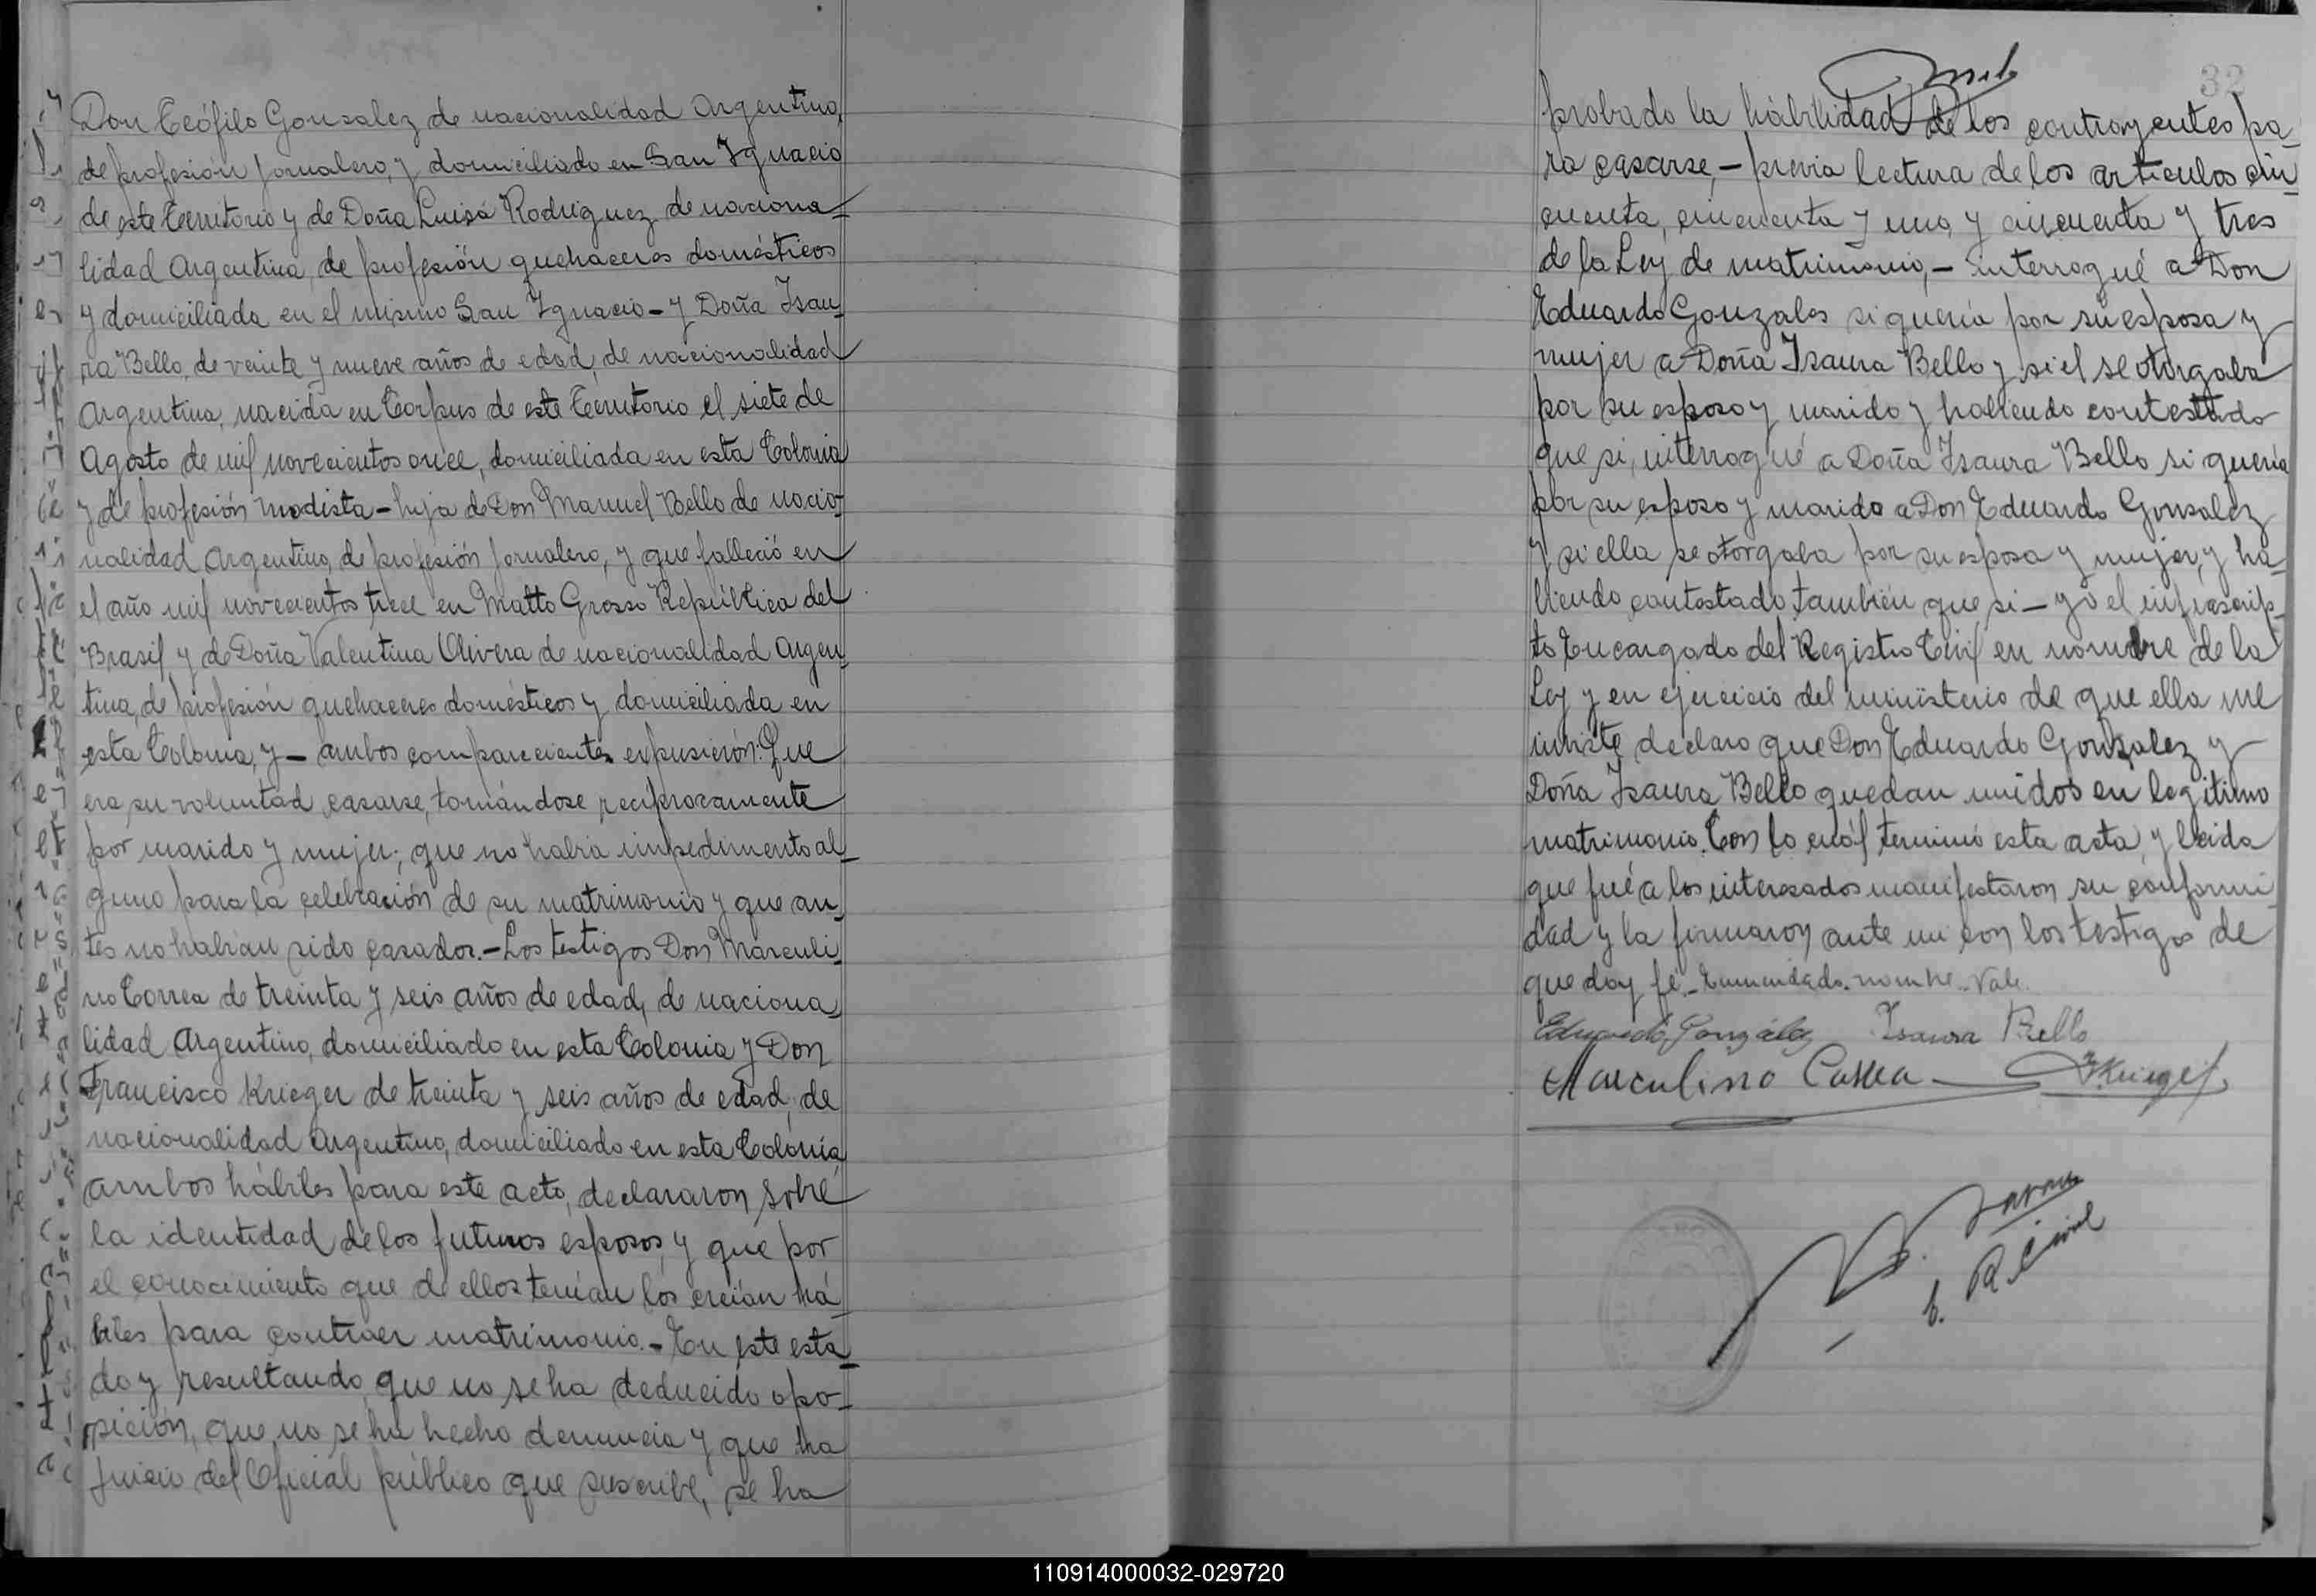 Don Teófilo Gonsalez de nacionalidad Argentino,
de profesión jornalero, y domiciliado en San Ignacio
de este Territorio y de Doña Luisa Rodriguez de naciona-
lidad Argentina, de profesión quehaceres domésticos
y domiciliada en el mismo San Ignacio - y Doña Isau-
ra Bello, de veinte y nueve años de edad, de nacionalidad
Argentina, nacida en Corpus de este Territorio el siete de
Agosto de mil novecientos once, domiciliada en esta Colonia
y de profesión modista - hija de Don Manuel Bello de nacio-
nalidad Argentino, de profesión jornalero, y que falleció en
el año mil novecientos trece en Matto Grosso República del
Brasil y de Doña Valentina Olivera de nacionalidad Argen-
tina, de profesión quehaceres domésticos y domiciliada en
esta Colonia, y - ambos comparecientes expusierón: Que
era su voluntad casarse, tomándose recíprocamente
por marido y mujer; que no había impedimento al-
guno para la celebración de su matrimonio y que an-
tes no habían sido casados. - Los testigos Don Marculi-
no Correa de treinta y seis años de edad, de naciona-
lidad Argentino, domiciliado en esta Colonia y Don
Francisco Krieger de treinta y seis años de edad, de
nacionalidad Argentino, domiciliado en esta Colonia,
ambos hábiles para este acto, declararon sobre
la identidad de los futuros esposos, y que por
el conocimiento que de ellos tenían los creían há-
biles para contraer matrimonio. - En este esta-
do y resultando que no se ha deducido opo-
sición, que no se ha hecho denuncia y que ha
juicio del Oficial público que suscribe, se ha
32
probado la habilidad de los contrayentes pa-
ra casarse, - previa lectura de los artículos cin-
cuenta, cincuenta y uno, y cincuenta y tres
de la Ley de matrimonio, - interrogué a Don
Eduardo Gonzales si quería por su esposa y
mujer a Doña Isaura Bello y si el se otorgaba
por su esposo y marido y habiendo contestado
que si, interrogué a Doña Isaura Bello si quería
por su esposo y marido a Don Eduardo Gonsalez
y si ella se otorgaba por su esposa y mujer, y ha-
biendo contestado también que si - yo el infrascrip-
to Encargado del Registro Civil en nombre de la
Ley y en ejercicio del ministerio de que ella me
inviste, declaro que Don Eduardo Gonzalez y
Doña Isaura Bello quedan unidos en legítimo
matrimonio. Con lo cuál terminó esta acta, y leida
que fué a los interesados manifestaron su conformi-
dad y la firmaron ante mi con los testigos de
que doy fé. - Enmendado - nombre - Vale.
Eduardo González Isaura Bello
Marculino Correa F Krieger
R Civil
110914000032-029720